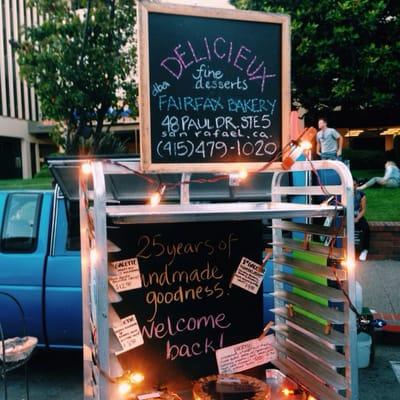 DELICIEUX
fine
desserts
dba
FAIRFAX BAKERY
48 PAUL DR. STE 5
san rafael, ca.
(415) 479-1020
25 years of
handmade
goodness.
Welcome
back!